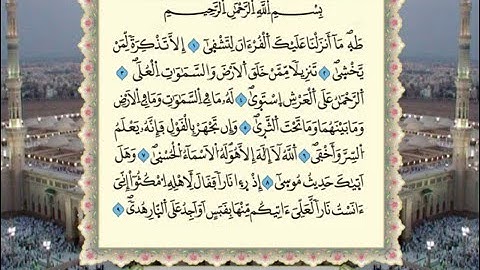 بِسْمِ اللَّهِ الرَّحْمَٰنِ الرَّحِيمِ
طَهِ مَآ أَنزَلْنَا عَلَيْكَ الْقُرْءَانَ لِتَشْقَىٰ ١ إِلَّا تَذْكِرَةً لِّمَنْ
يَّخْشَىٰ ٢ تَنزِيلًا مِّمَّنْ خَلَقَ الْأَرْضَ وَالسَّمَٰوَٰتِ الْعُلَى ٣
الرَّحْمَٰنُ عَلَى الْعَرْشِ اسْتَوَىٰ ٤ لَهُۥ مَا فِي السَّمَٰوَٰتِ وَمَا فِي الْأَرْضِ
وَمَا بَيْنَهُمَا وَمَا تَحْتَ الثَّرَىٰ ٥ وَإِن تَجْهَرْ بِالْقَوْلِ فَإِنَّهُۥ يَعْلَمُ
السِّرَّ وَأَخْفَى ٦ اللَّهُ لَآ إِلَٰهَ إِلَّا هُوَ لَهُ الْأَسْمَآءُ الْحُسْنَىٰ ٧ وَهَلْ
أَتَىٰكَ حَدِيثُ مُوسَىٰ ٨ إِذْ رَءَا نَارًا فَقَالَ لِأَهْلِهِ امْكُثُوٓا إِنِّيَ
ءَانَسْتُ نَارًا لَّعَلِّيَ ءَاتِيكُم مِّنْهَا بِقَبَسٍ أَوْ أَجِدُ عَلَى النَّارِ هُدًى ٩